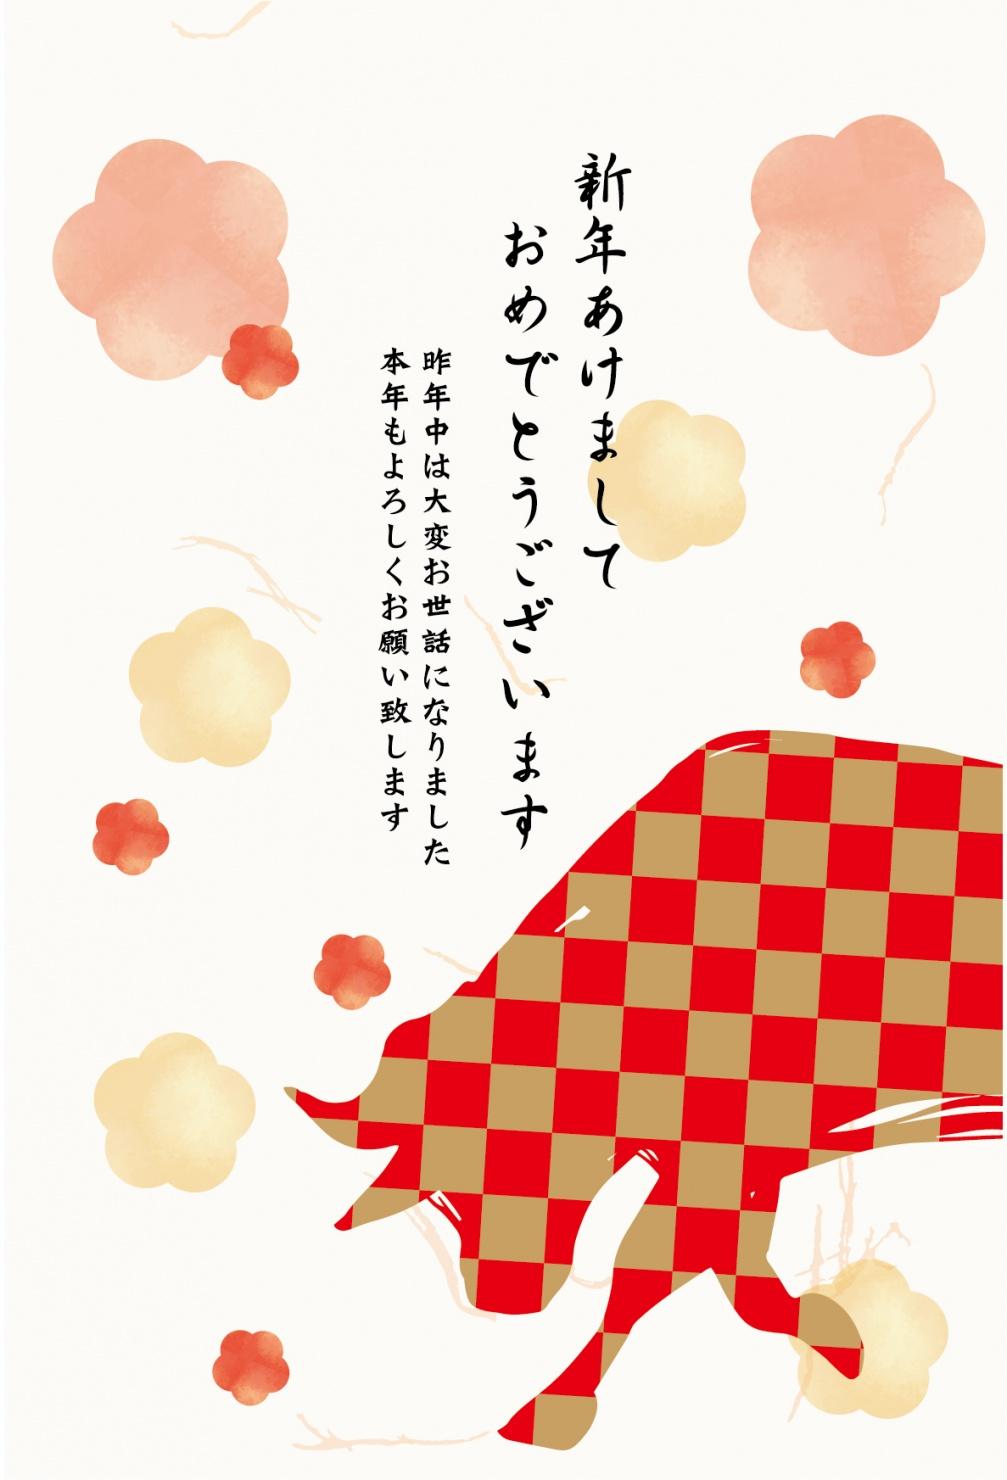 新年あけまして
おめでとうございます
昨年中は大変お世話になりました
本年もよろしくお願い致します